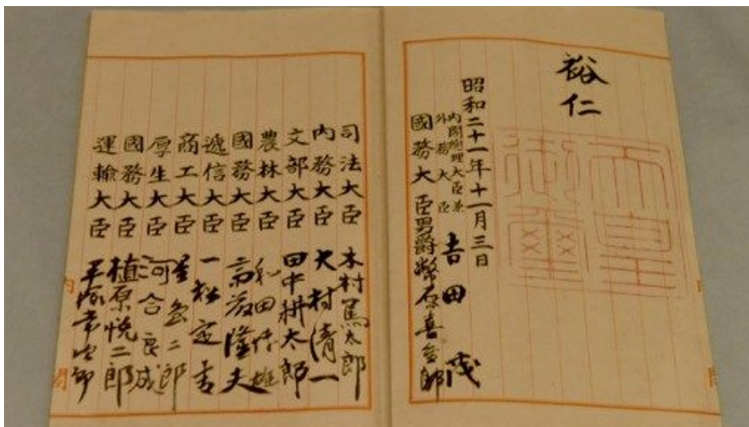 裕仁
昭和二十一年十一月三日
内閣總理大臣兼
外務大臣 吉田茂
國務大臣男爵幣原喜重郎
司法大臣 木村篤太郎
内務大臣 大村清一
文部大臣 田中耕太郎
農林大臣 和田博雄
國務大臣 斎藤隆夫
遞信大臣 一松定吉
商工大臣 星島二郎
厚生大臣 河合良成
國務大臣 植原悦二郎
運輸大臣 平塚常次郎
天皇
御璽
内
閣